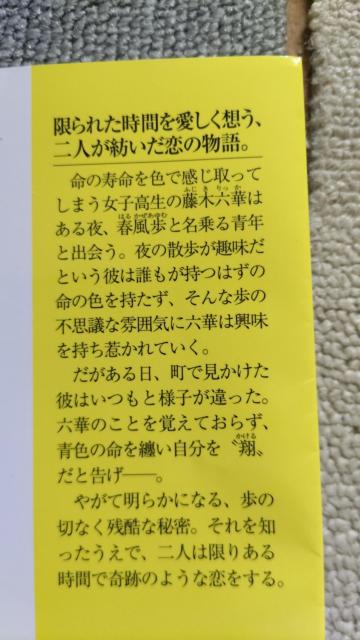 限られた時間を愛しく想う、
二人が紡いだ恋の物語。
命の寿命を色で感じ取って
しまう女子高生の藤木六華は
ある夜、春風歩と名乗る青年
と出会う。夜の散歩が趣味だ
という彼は誰もが持つはずの
命の色を持たず、そんな歩の
不思議な雰囲気に六華は興味
を持ち惹かれていく。
だがある日、町で見かけた
彼はいつもと様子が違った。
六華のことを覚えておらず、
青色の命を纏い自分を〝翔〟
だと告げ――。
やがて明らかになる、歩の
切なく残酷な秘密。それを知
ったうえで、二人は限りある
時間で奇跡のような恋をする。